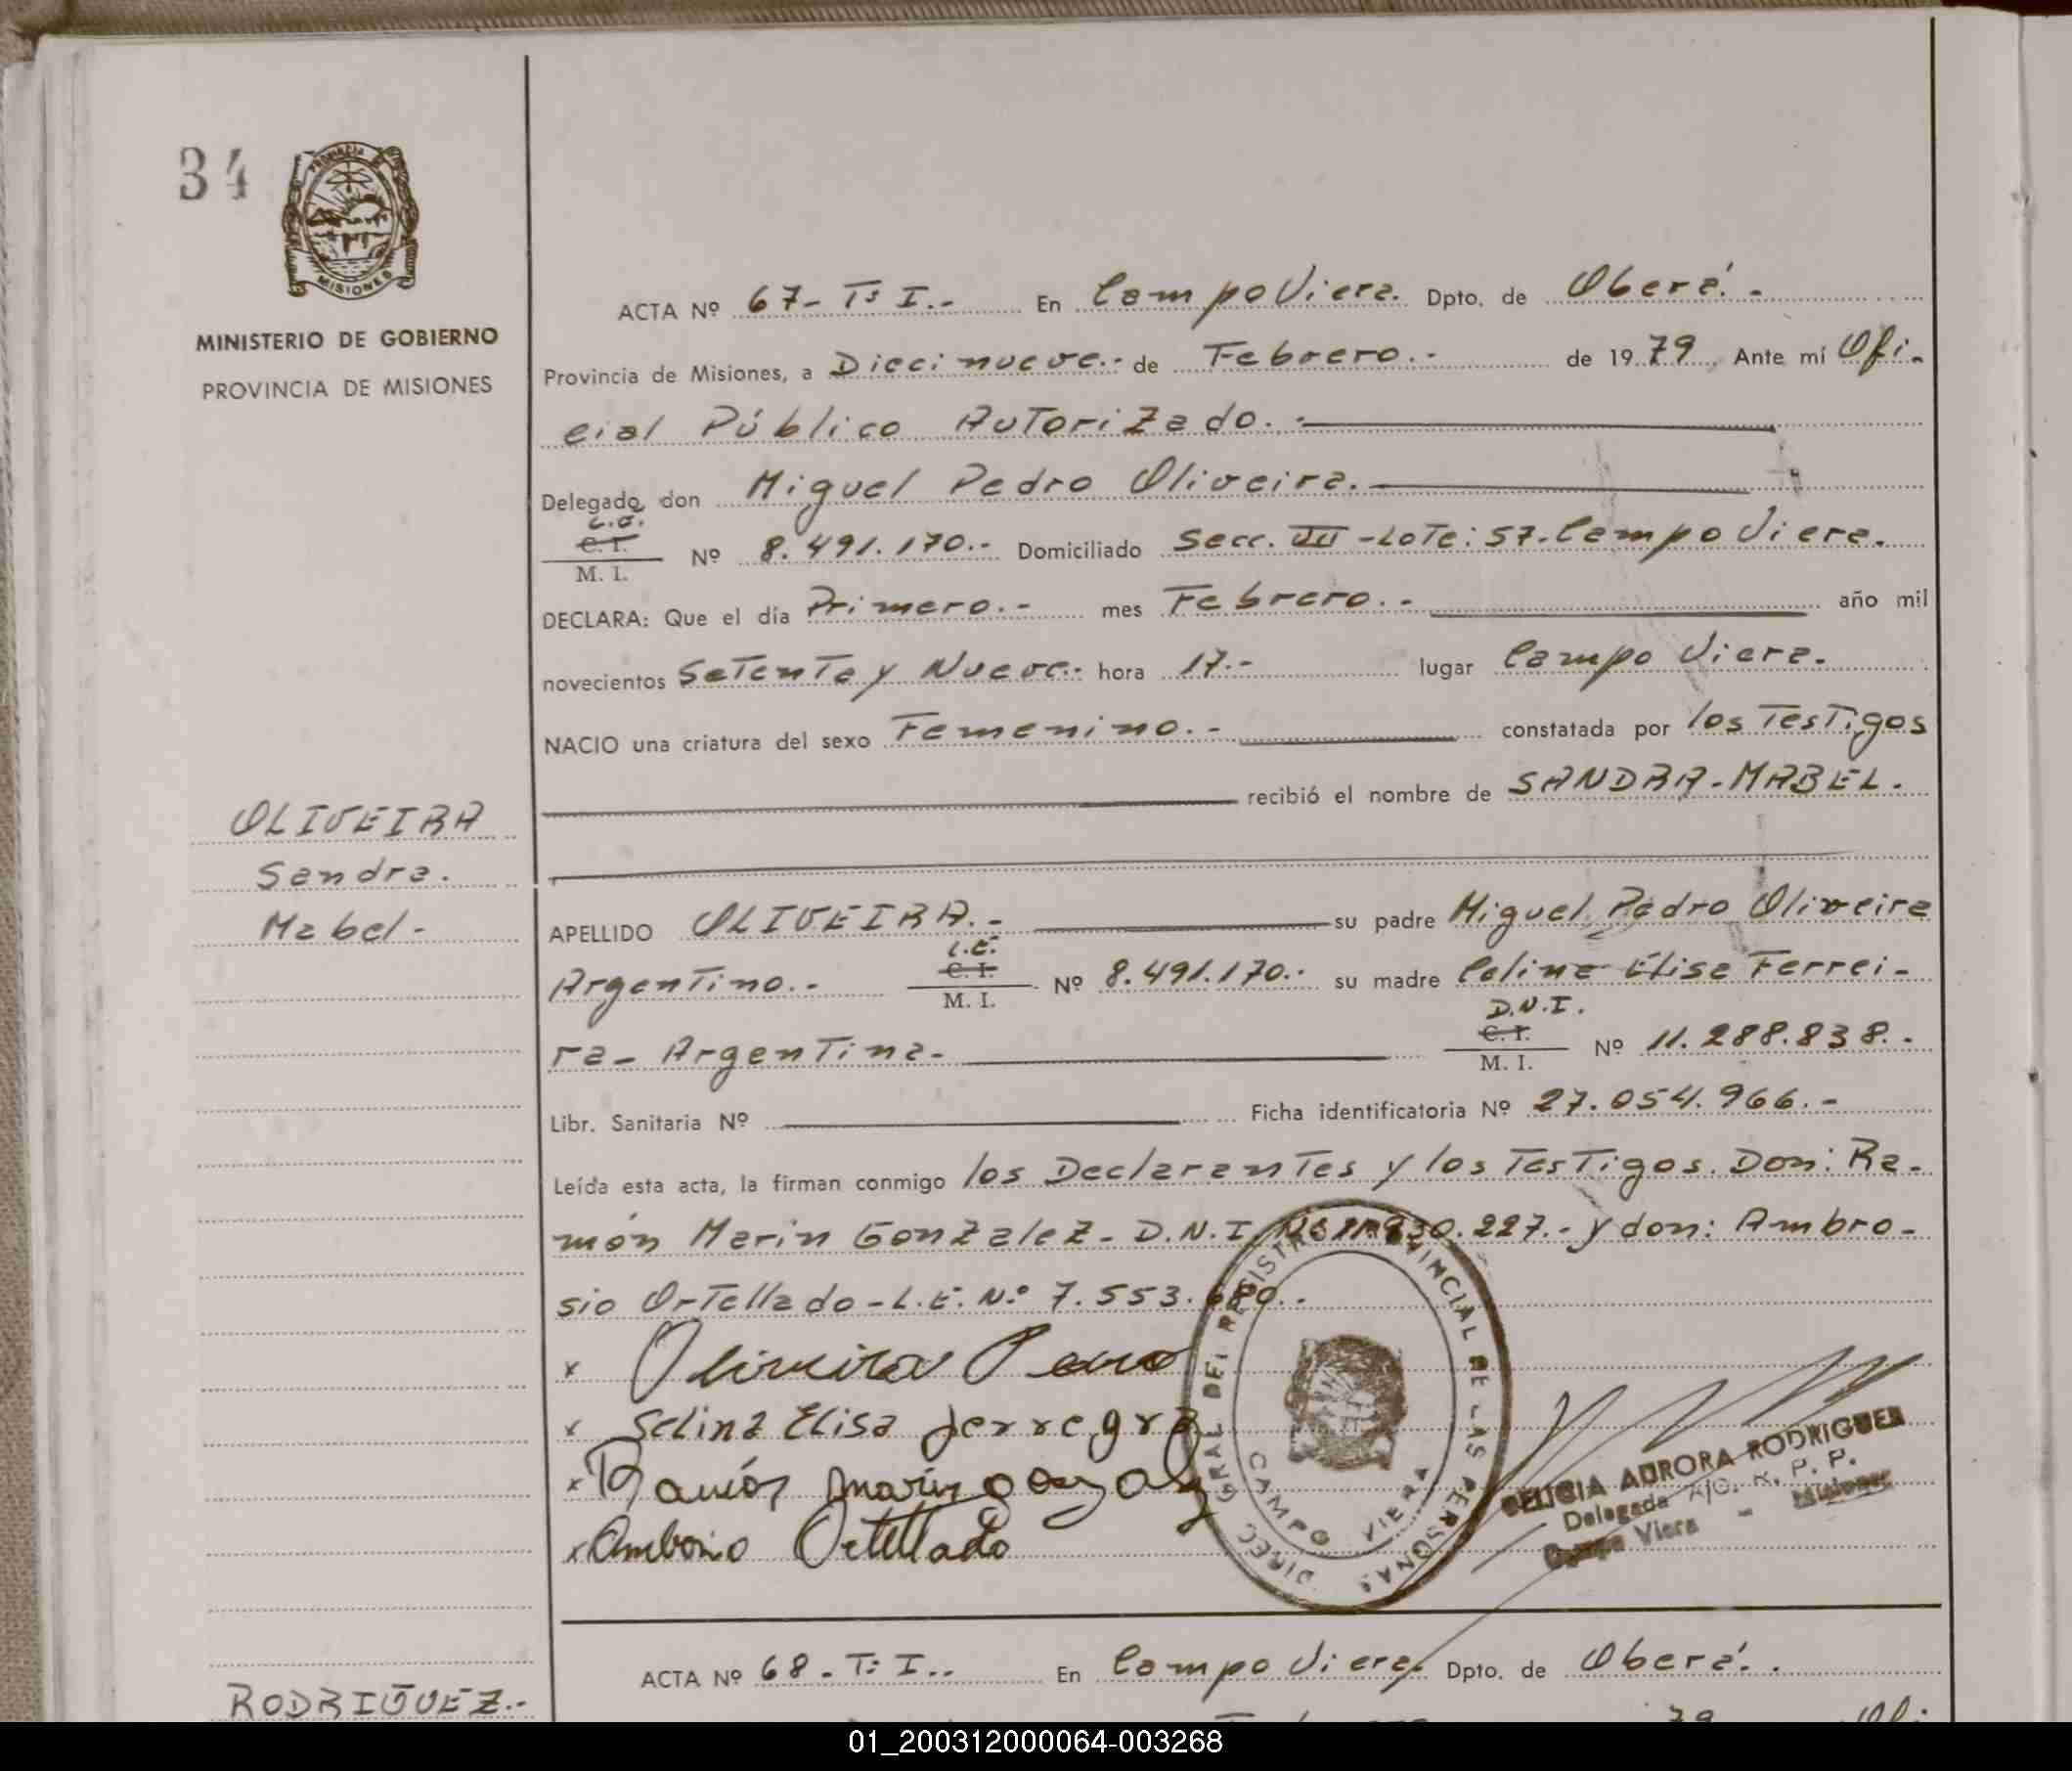 34
PROVINCIA DE
MISIONES
MINISTERIO DE GOBIERNO
PROVINCIA DE MISIONES
ACTA Nº 67- Tº I.- En Campo Viera. Dpto. de Oberá.-
Provincia de Misiones, a Diecinueve.- de Febrero.- de 1979, Ante mí Ofi-
cial Público Autorizado.-
Delegado, don Miguel Pedro Oliveira.
L.E.
C.I.
M. I. Nº 8.491.170.- Domiciliado Secc. III -Lote: 57- Campo Viera.
DECLARA: Que el día Primero.- mes Febrero.- año mil
novecientos Setenta y Nueve.- hora 17.- lugar Campo Viera.
NACIO una criatura del sexo Femenino.- constatada por los Testigos
recibió el nombre de SANDRA-MABEL.
OLIVEIRA
Sandra.
Mabel-
APELLIDO OLIVEIRA.- su padre Miguel Pedro Oliveira
Argentino.- L.E. C.I. M. I. Nº 8.491.170.- su madre Celina Elisa Ferrei-
ra- Argentina- D.N.I. C.I. M. I. Nº 11.288.838.-
Libr. Sanitaria Nº Ficha identificatoria Nº 27.054.966.-
Leída esta acta, la firman conmigo los Declarantes y los Testigos. Don: Ra-
món Marin Gonzalez- D.N.I. 227.- y don: Ambro-
sio Ortellado-L.E. Nº 7.553.680.-
x Oliveira Pedro
x Selina Elisa
x Ramón Marin Gonzalez
x Ambrosio Ortellado
DIREC. GRAL DEL REGISTRO PROVINCIAL DE LAS PERSONAS
CAMPO VIERA
FELICIA AURORA RODRIGUEZ
Delegada A/C. R. P. P.
Campo Viera - Misiones
ACTA Nº 68- Tº I.. En Campo Viera. Dpto. de Oberá.-
RODRIGUEZ.-
79 Ofi
01_200312000064-003268